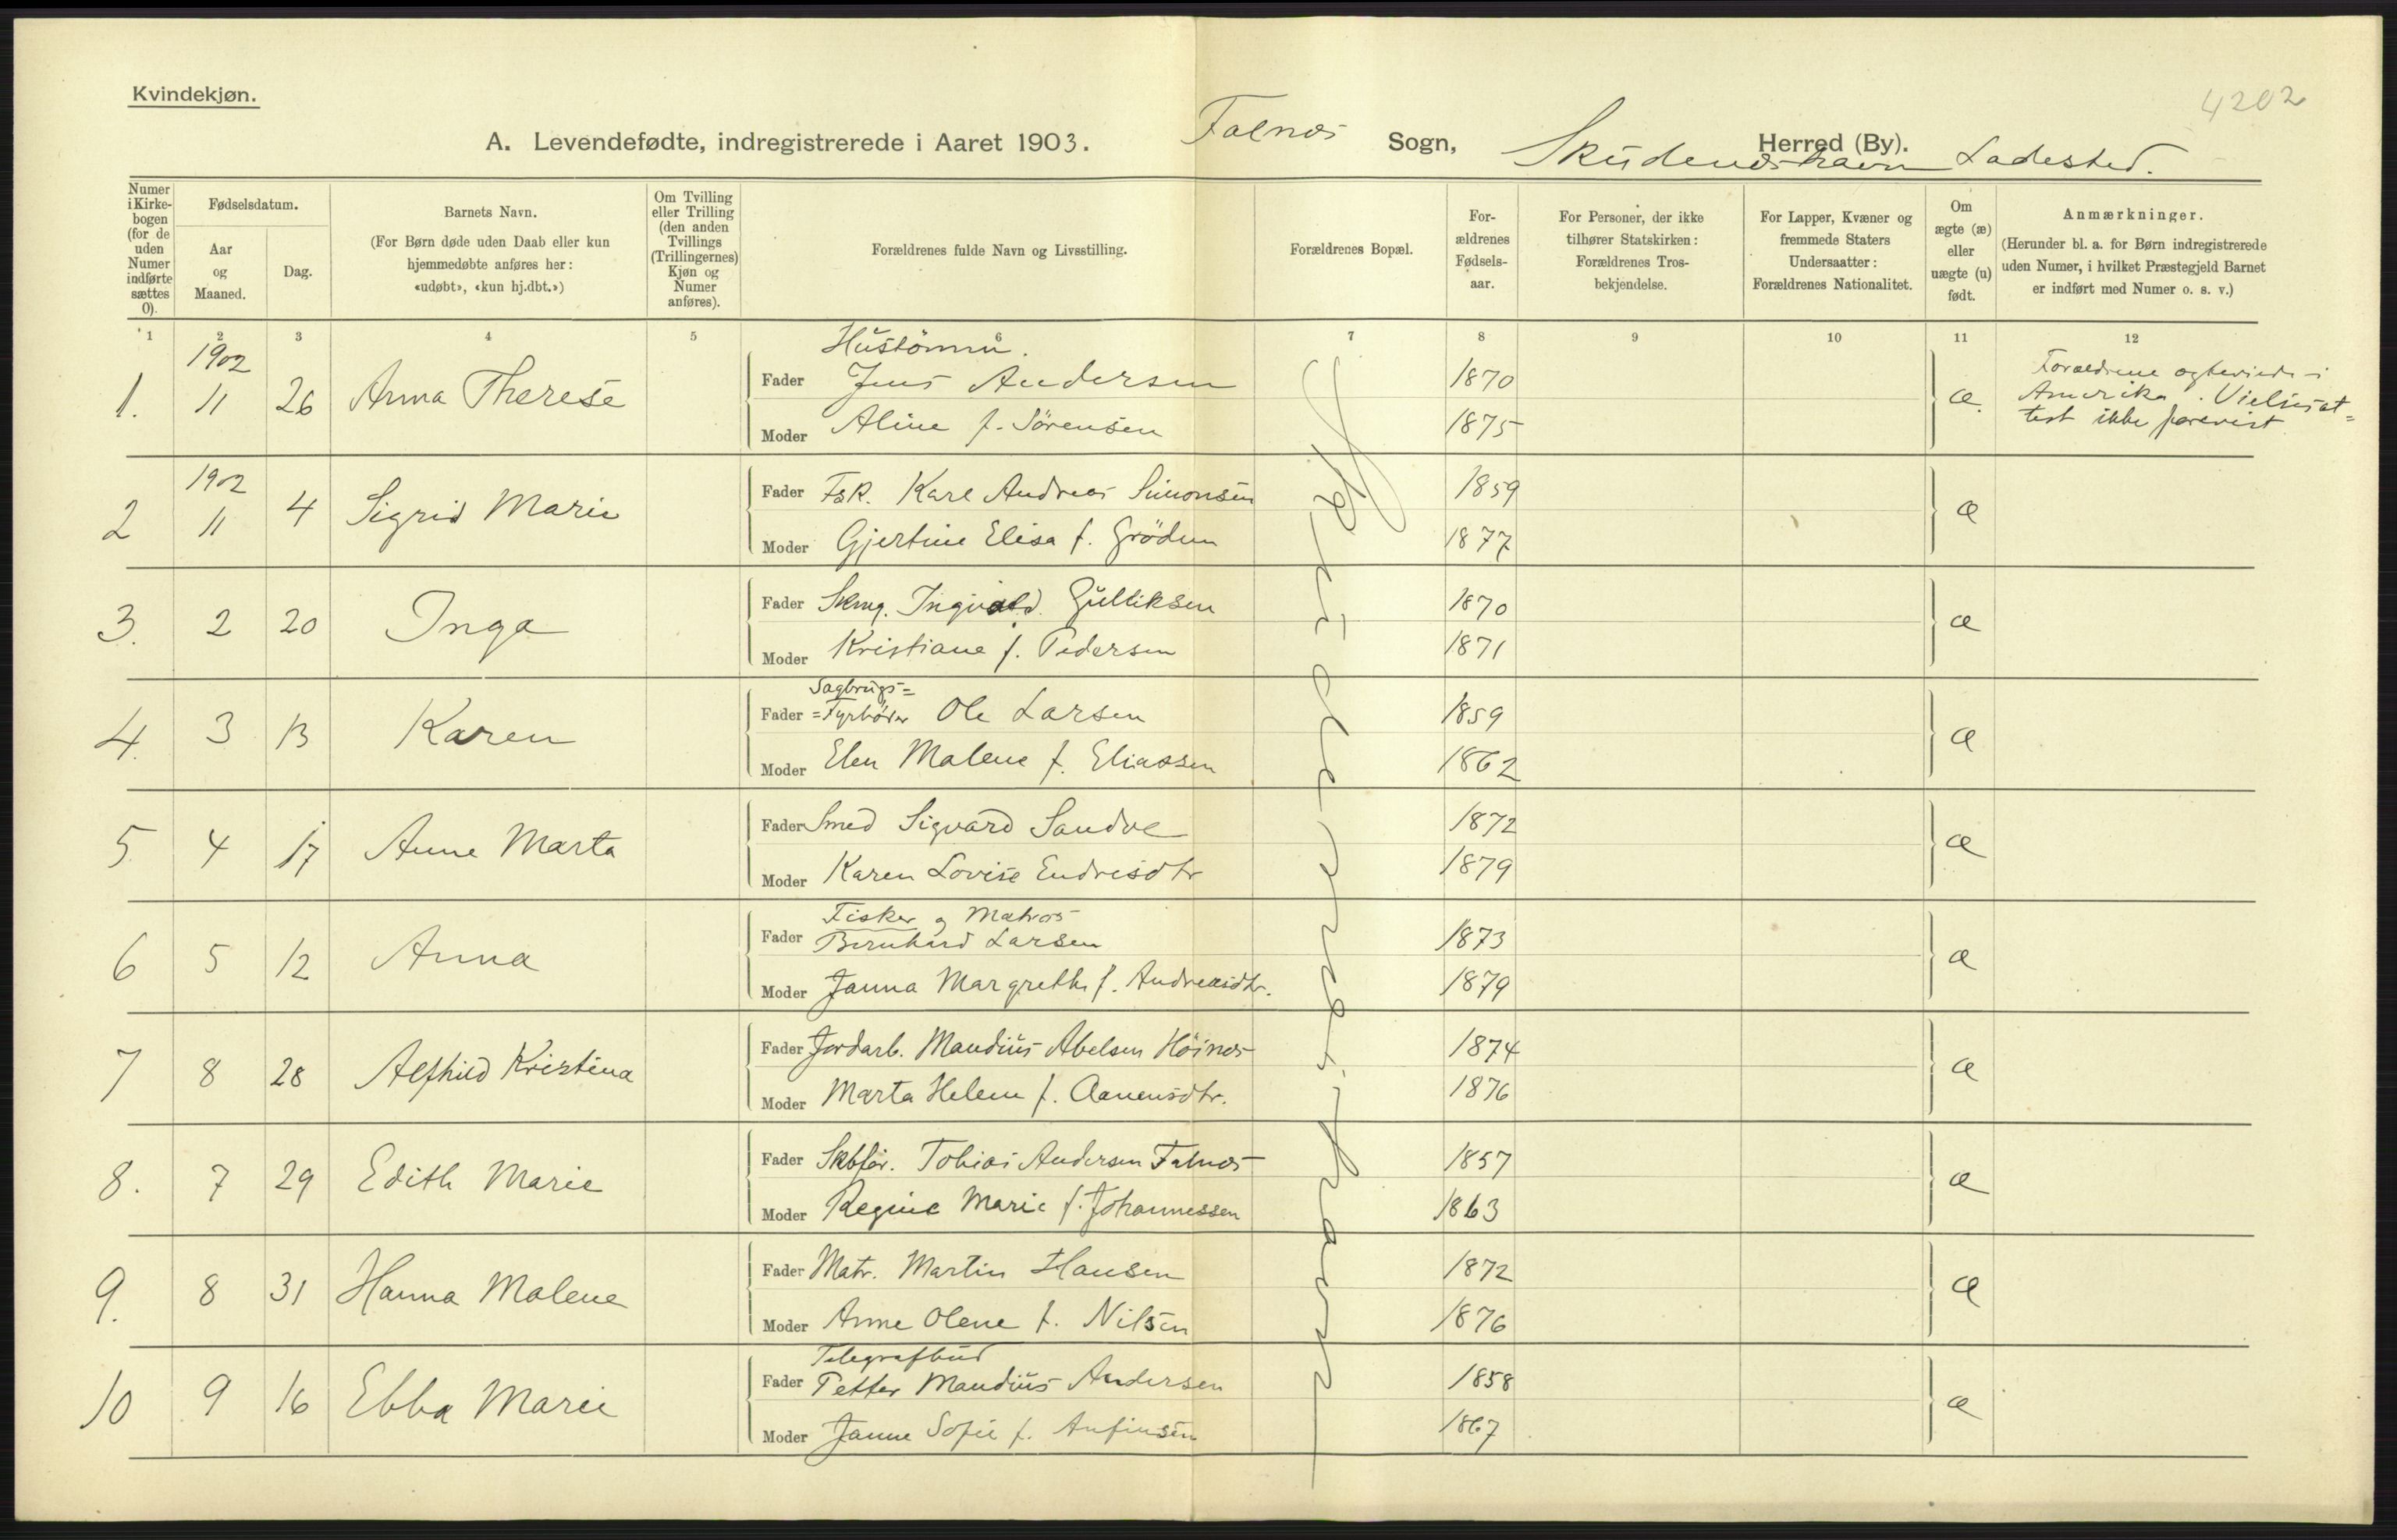 Kvindekjøn.
4202
A. Levendefødte, indregistrerede i Aaret 1903. Falnes Sogn, Skudeneshavn Herred (By). Ladested.
Numer i Kirkebogen (for de uden Numer indførte sættes 0).
Fødselsdatum.
Aar og Maaned.
Dag.
Barnets Navn.
(For Børn døde uden Daab eller kun hjemmedøbte anføres her: «udøbt», «kun hj.dbt.»)
Om Tvilling eller Trilling (den anden Tvillings (Trillingernes) Kjøn og Numer anføres).
Forældrenes fulde Navn og Livsstilling.
Forældrenes Bopæl.
Forældrenes Fødselsaar.
For Personer, der ikke tilhører Statskirken: Forældrenes Trosbekjendelse.
For Lapper, Kvæner og fremmede Staters Undersaatter: Forældrenes Nationalitet.
Om ægte (æ) eller uægte (u) født.
Anmærkninger.
(Herunder bl. a. for Børn indregistrerede uden Numer, i hvilket Præstegjeld Barnet er indført med Numer o. s. v.)
1 2 3 4 5 6 7 8 9 10 11 12
1. 1902 11 26 Anna Therese
Hustömm.
Fader Jens Andersen 1870
Moder Aline f. Sörensen 1875
æ.
Forældrene
Amerika. Vielsesat=
test ikke forevist
2 1902 11 4 Sigrid Marie
Fader Fsk. Karl Andreas Simonsen 1859
Moder Gjertine Elisa f. Grödem 1877
æ
3. 2 20 Inga
Fader Skmg. Ingvald Gulliksen 1870
Moder Kristiane f. Pedersen 1871
æ
4. 3 13 Karen
Sagbrugs=
Fader =Fyrböder Ole Larsen 1859
Moder Elen Malene f. Eliassen 1862
æ
5 4 17 Anne Marta
Fader Smed Sigvard Sandve 1872
Moder Karen Lovise Endresdtr 1879
æ
6 5 12 Anna
Fisker og Matros
Fader Bernhard Larsen 1873
Moder Janna Margrethe f. Andreasdtr. 1879
æ
7 8 28 Alfhild Kristina
Fader Jordarb. Maudius Abelsen Höines 1874
Moder Marta Helene f. Aanensdtr. 1876
æ
8. 7 29 Edith Marie
Fader Skbför. Tobias Andersen Falnes 1857
Moder Regine Marie f. Johannessen 1863
æ
9. 8 31 Hanna Malene
Fader Matr. Martin Hansen 1872
Moder Anne Olene f. Nilsen 1876
æ
10 9 16 Ebba Marie
Telegrafbud
Fader Petter Maudius Andersen 1858
Moder Janne Sofie f. Anfinsen 1867
æ
Skudeneshavn